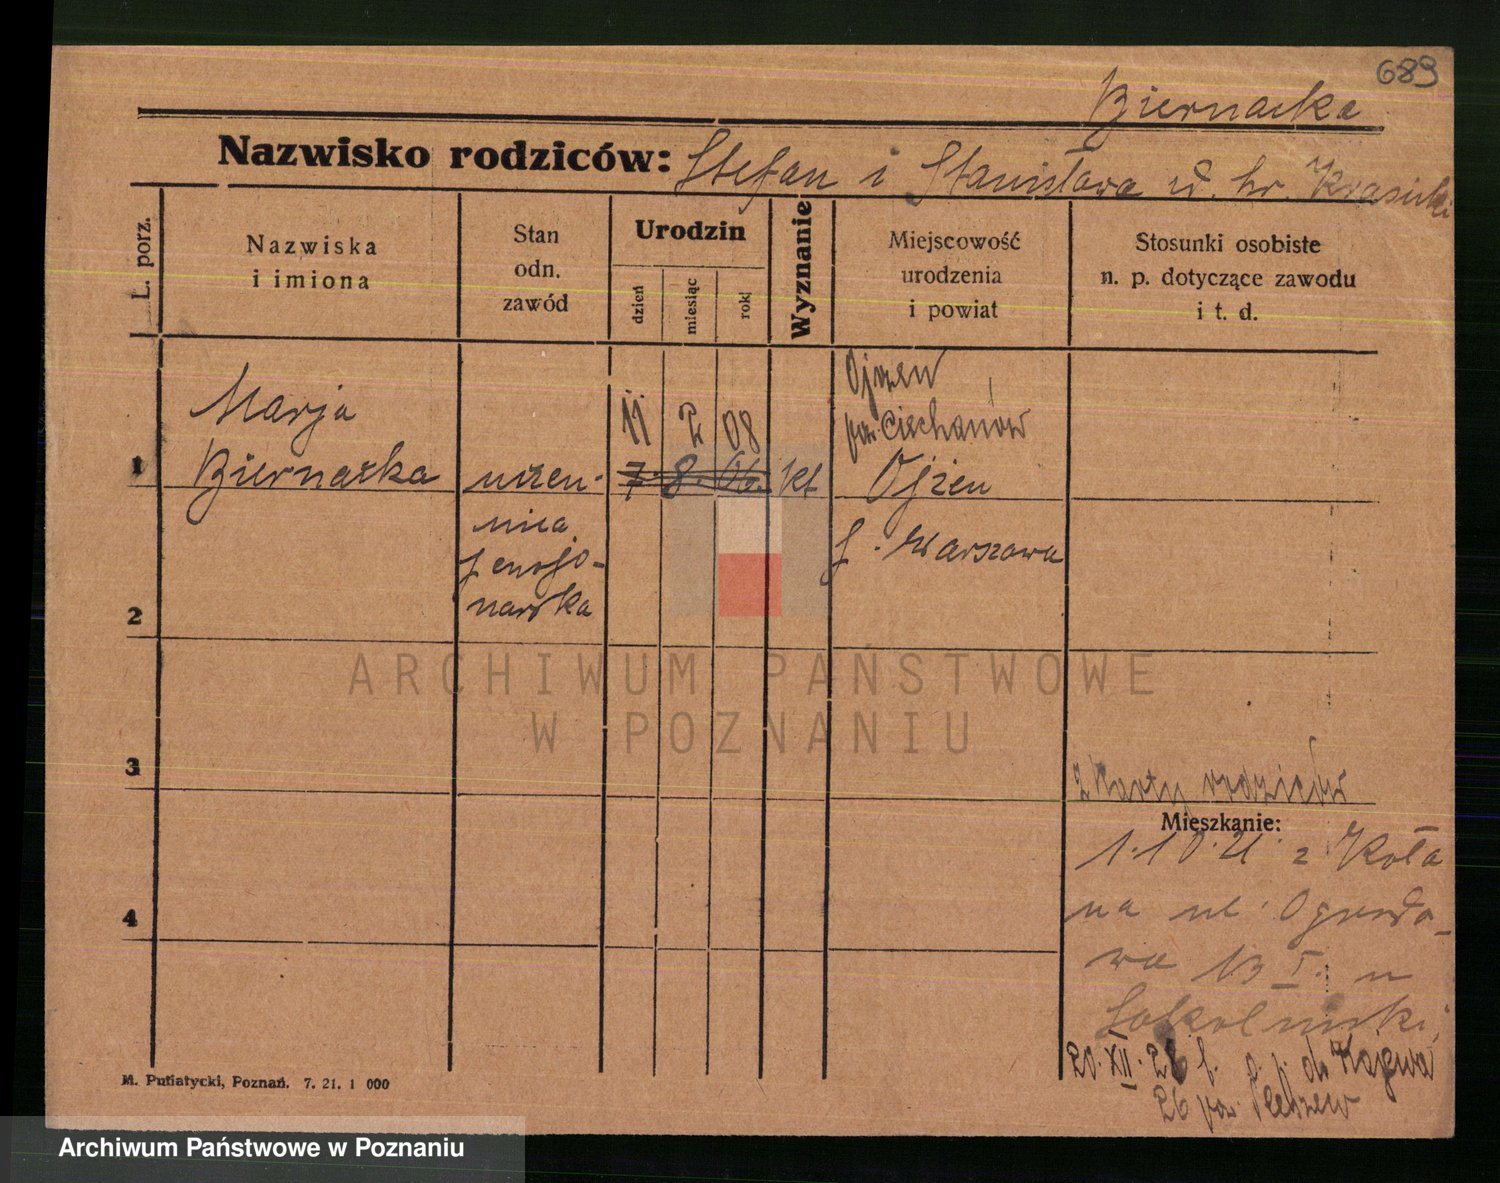 689
Biernacka
Nazwisko rodziców: Stefan i Stanisława z d. hr. Krasicki
L. porz.
Nazwiska
i imiona
Stan
odn.
zawód
Urodzin
dzień
miesiąc
rok
Wyznanie
Miejscowość
urodzenia
i powiat
Stosunki osobiste
n. p. dotyczące zawodu
i t. d.
1
Marja
Biernacka
uczen-
nica
11 2 08
7. 8. 06.
kt
pow. Ciechanów
Ojżen
Warszawa
2
3
4
z karty rodziców
Mieszkanie:
1.10.21. z Koła
na ul. Ogrodo-
wa 13 I. u
20.XII.26
26 pow. Pleszew
M. Putiatycki, Poznań. 7. 21. 1 000
ARCHIWUM PAŃSTWOWE
W POZNANIU
Archiwum Państwowe w Poznaniu